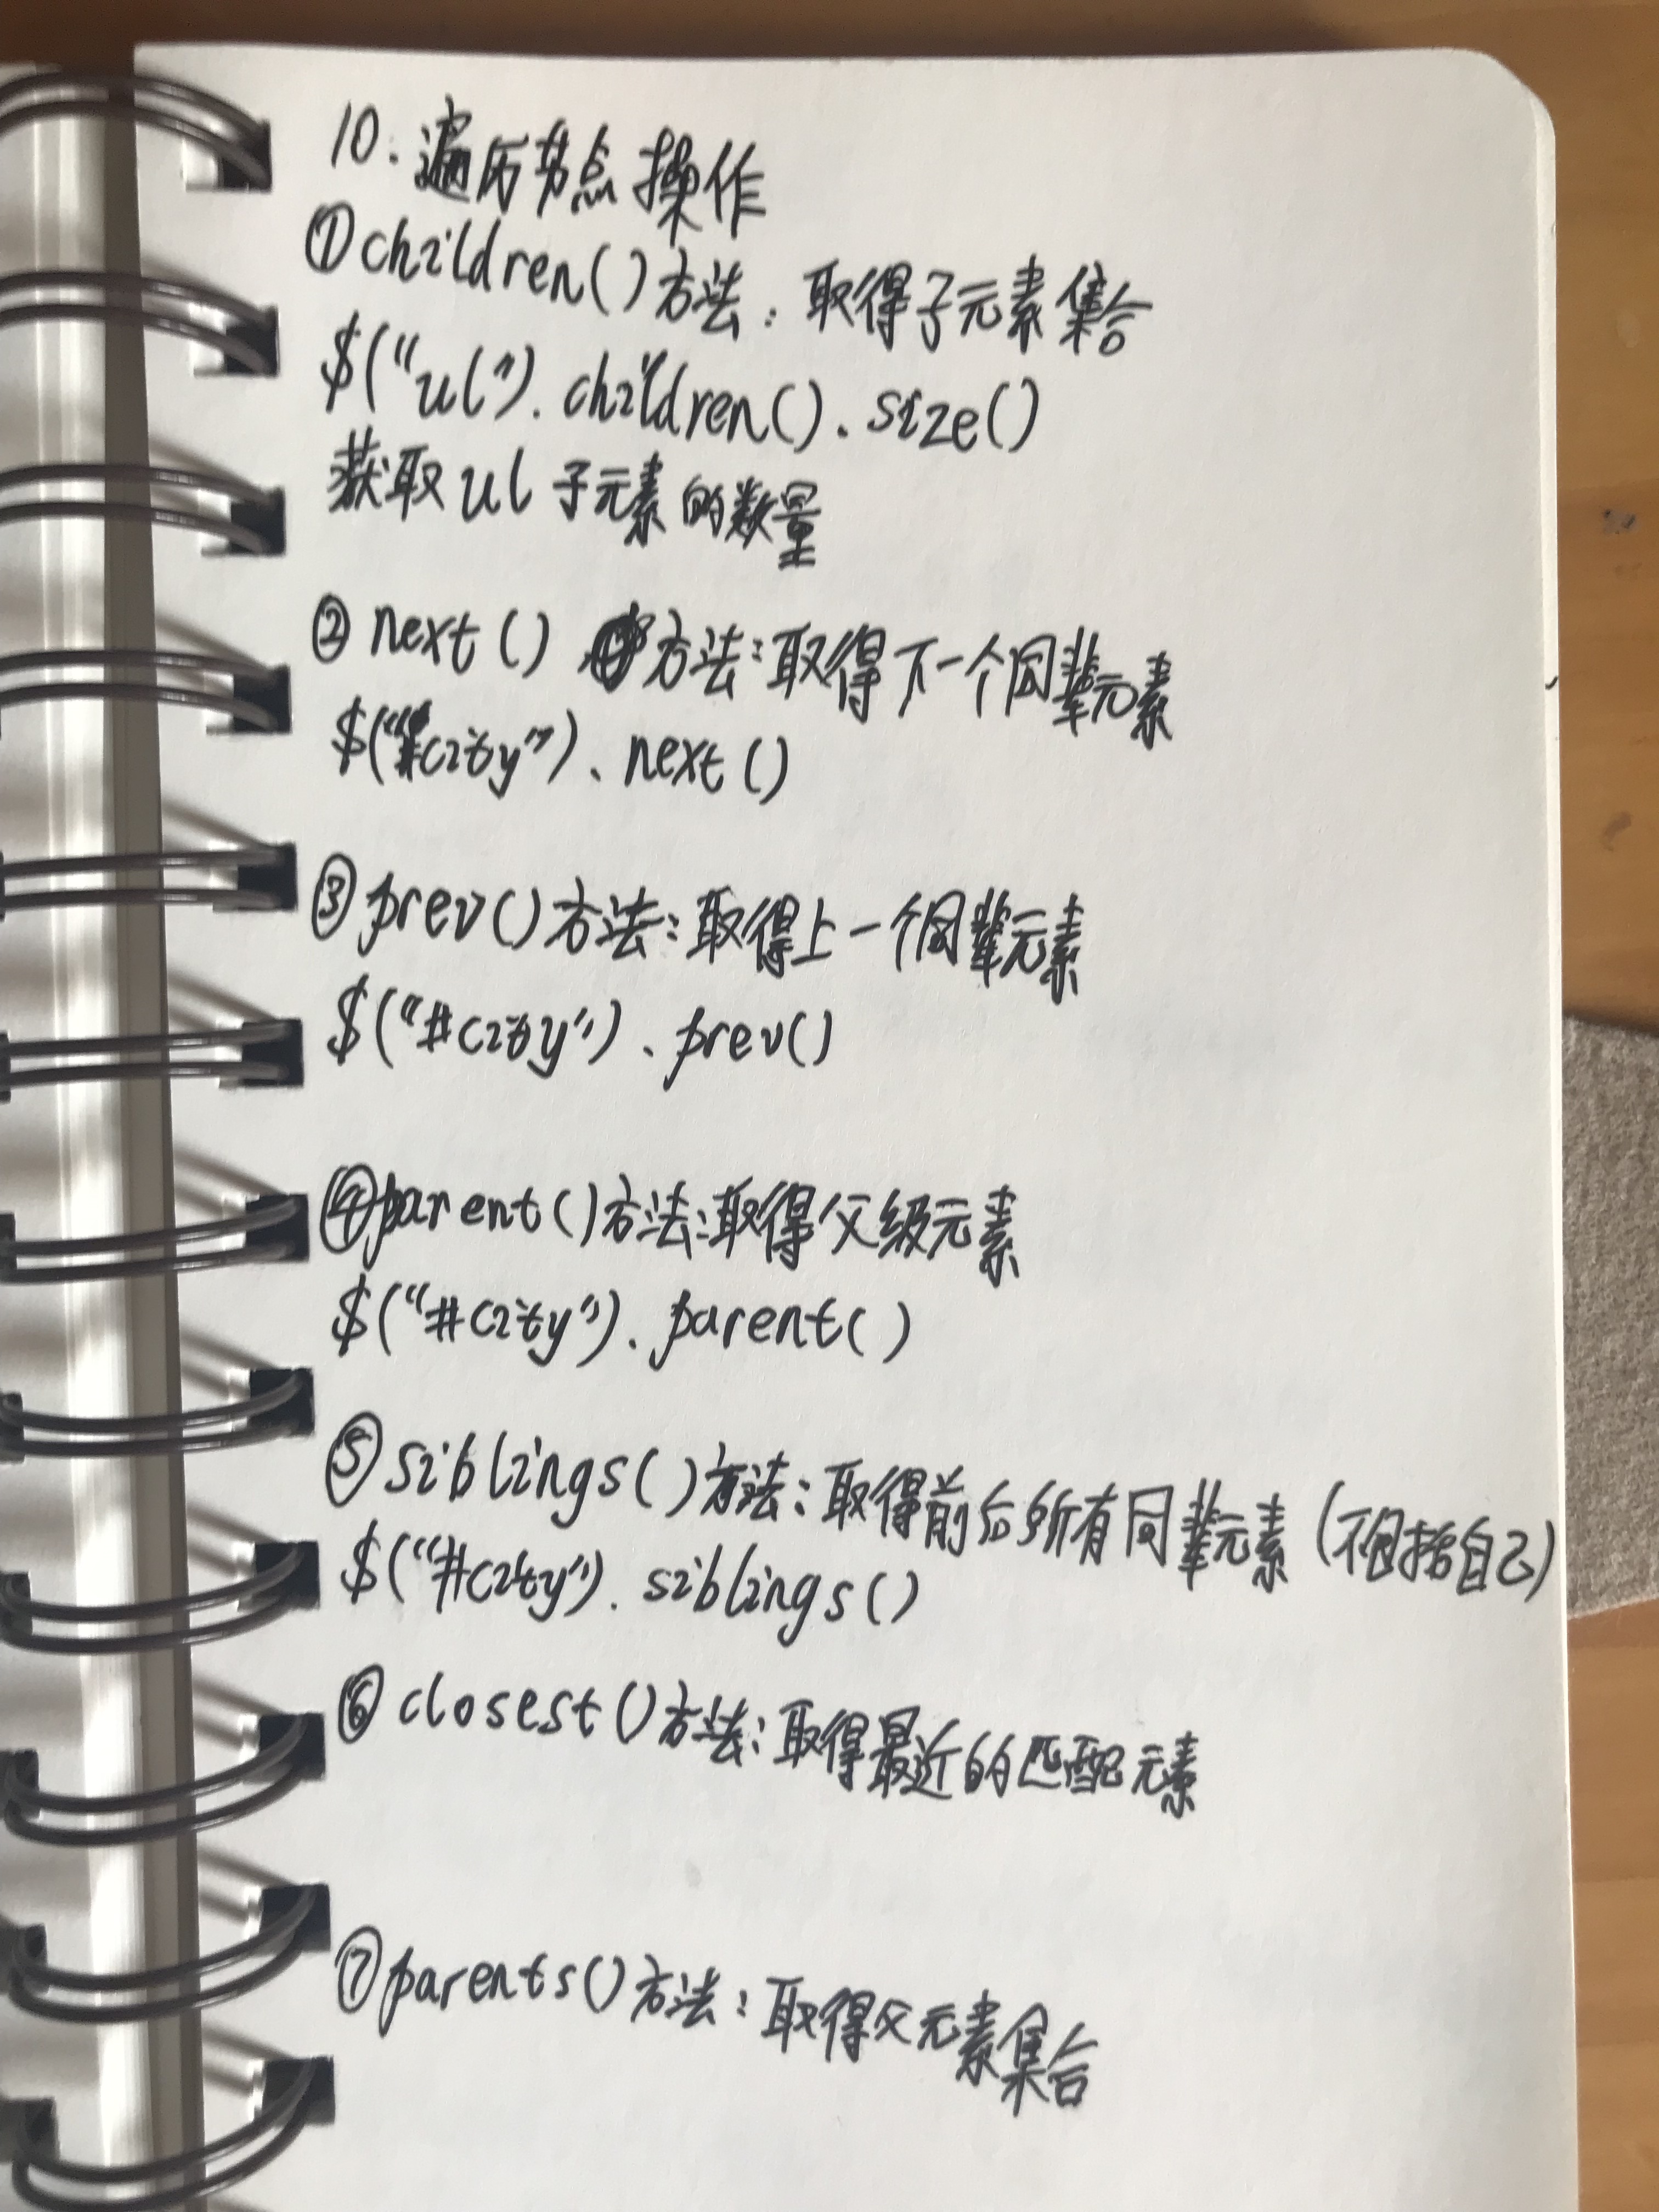 10. 遍历节点操作
①children()方法：取得子元素集合
$("ul").children().size()
获取ul子元素的数量
②next()方法：取得下一个同辈元素
$("#city").next()
③prev()方法：取得上一个同辈元素
$("#city").prev()
④parent()方法：取得父级元素
$("#city").parent()
⑤siblings()方法：取得前后所有同辈元素(不包括自己)
$("#city").siblings()
⑥closest()方法：取得最近的匹配元素
⑦parents()方法：取得父元素集合